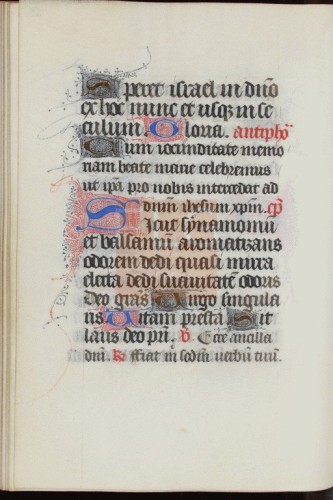 Speret israel in dn̄o
ex hoc nunc et usq; in se
culum Gloria. antiphō
Cum iocunditate memo
riam beate marie celebremus
ut ip̄a pro nobis intercedat ad
dn̄um ihesum xp̄m. cp̄
Sicut synamomū
et balsamū aromatizans
odorem dedi quasi mirra
electa dedi suauitatē odoris
Deo gr̄as Uirgo singula
ris Uitam presta Sit
laus deo pr̄i. v. Ecce ancilla
dn̄i. R. ffiat m̄ scdm̄ uerbū tuū.